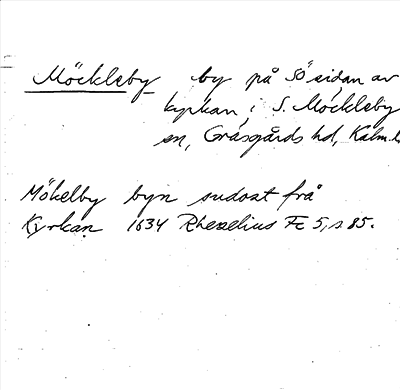 Möckleby by på SÖ sidan av
kyrkan i S. Möckleby
sn, Gräsgårds hd, Kalm.l.
Mökelby byn sudost frå
Kyrkan 1634 Rhezelius Fc 5, s 85.